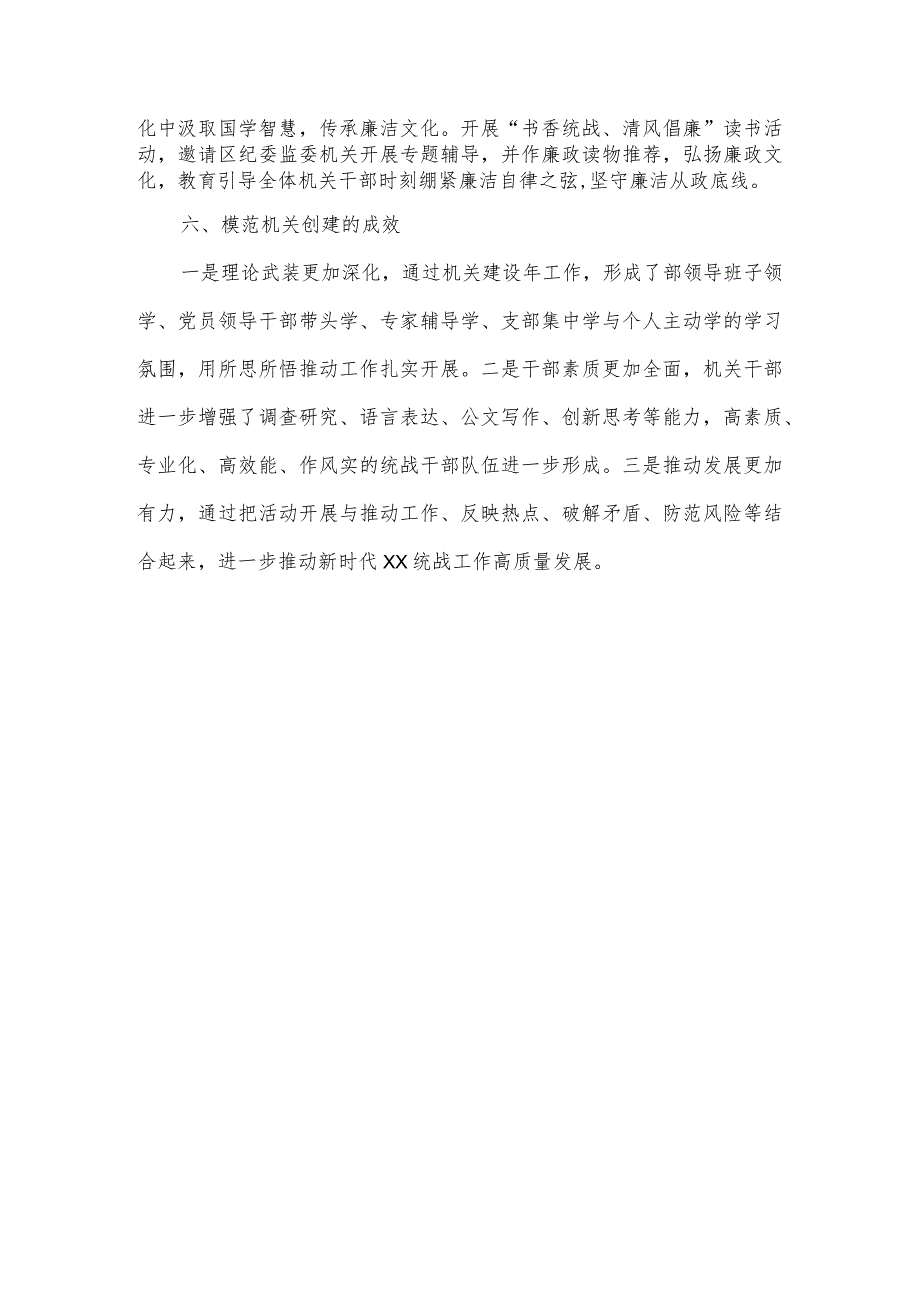 化中汲取国学智慧，传承廉洁文化。开展“书香统战、清风倡廉”读书活
动，邀请区纪委监委机关开展专题辅导，并作廉政读物推荐，弘扬廉政文
化，教育引导全体机关干部时刻绷紧廉洁自律之弦,坚守廉洁从政底线。
六、模范机关创建的成效
一是理论武装更加深化，通过机关建设年工作，形成了部领导班子领
学、党员领导干部带头学、专家辅导学、支部集中学与个人主动学的学习
氛围，用所思所悟推动工作扎实开展。二是干部素质更加全面，机关干部
进一步增强了调查研究、语言表达、公文写作、创新思考等能力，高素质、
专业化、高效能、作风实的统战干部队伍进一步形成。三是推动发展更加
有力，通过把活动开展与推动工作、反映热点、破解矛盾、防范风险等结
合起来，进一步推动新时代XX统战工作高质量发展。